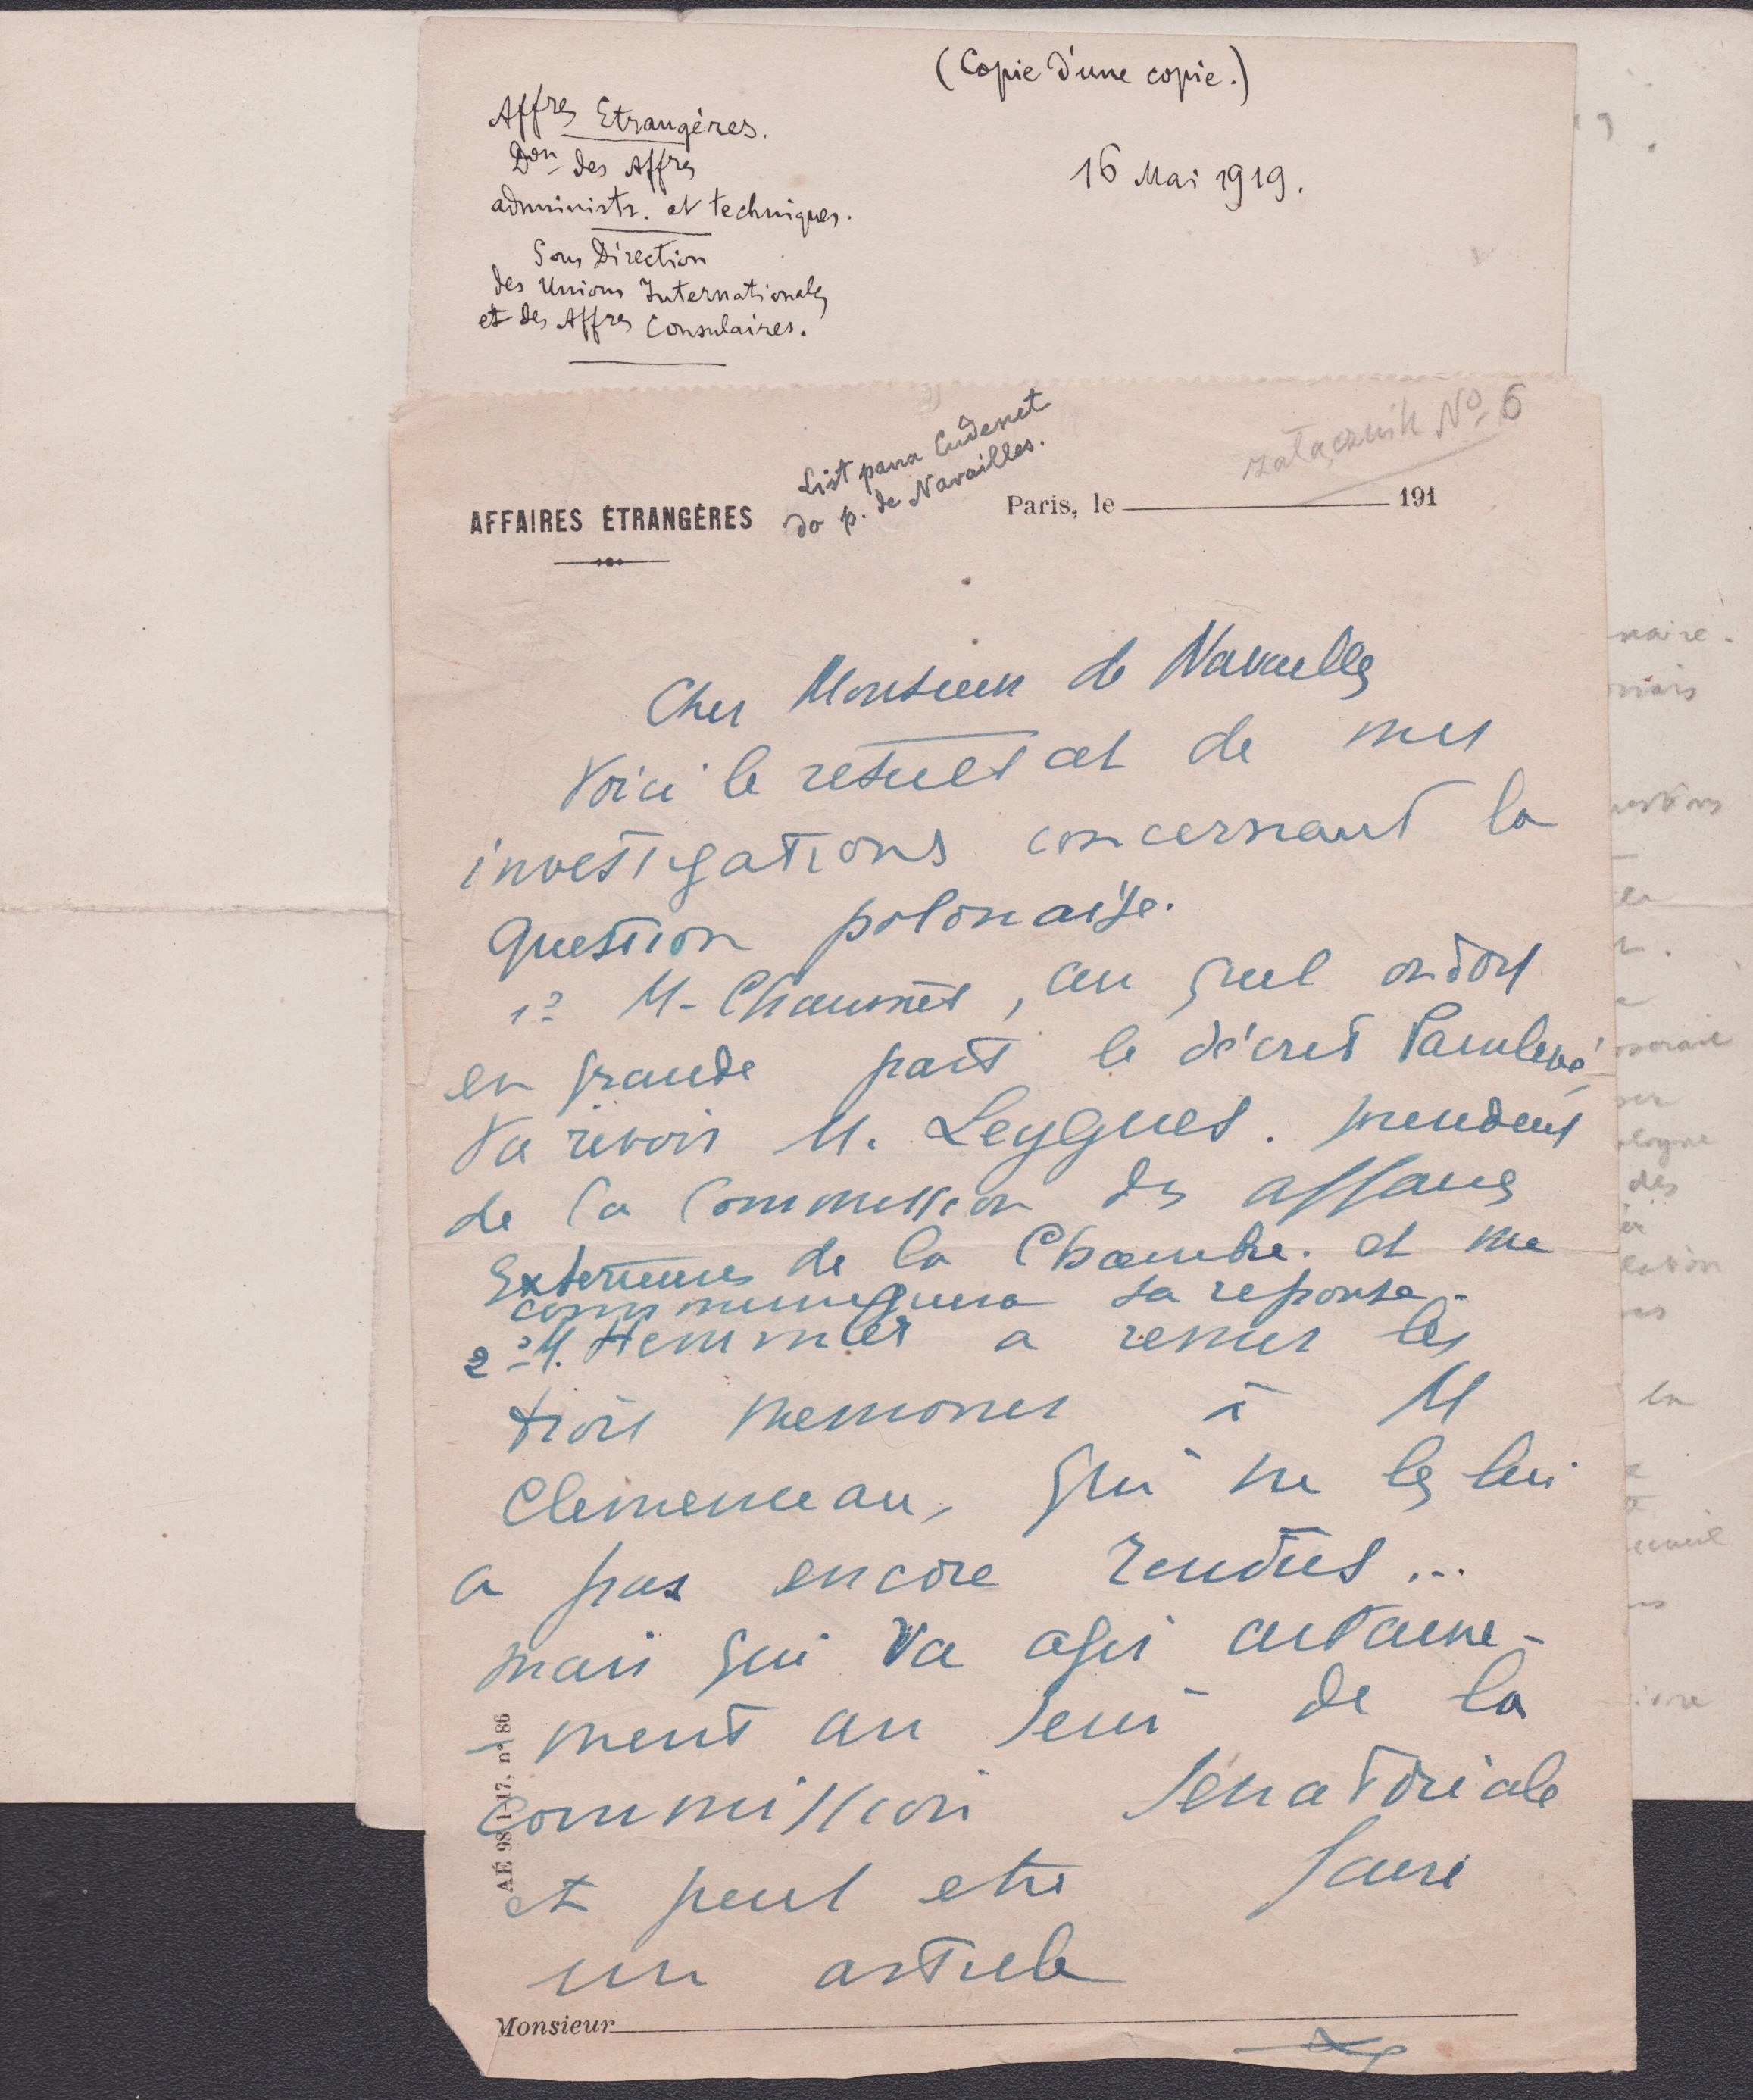 (Copie d'une copie.)
Aff<sup>res</sup> Etrangères.
D<sup>on</sup> des Aff<sup>res</sup>
administr. et techniques.
Sous Direction
des Unions Internationales
et des Aff<sup>res</sup> Consulaires.
16 Mai 1919.
załącznik No 6
List pana Cudenet
do p. de Navailles.
AFFAIRES ÉTRANGÈRES
Paris, le 191
Cher Monsieur de Navailles
Voici le resultat de mes
investigations concernant la
question polonaise.
1º M. Chaumet, au quel on doit
en grande part le décret Painlevé
va revoir M. Leygues. president
de la Commission des affaires
Exterieures de la Chambre. et me
communiquera sa reponse.
2º M. Hemmer a remis les
trois memoires à M
Clemenceau, qui ne les lui
a pas encore rendus...
mais qui va agir certaine-
-ment au sein de la
commission sénatoriale
et peut etre faire
un article
AÉ 98-1-17, nº 86
Monsieur
naire.
des
en